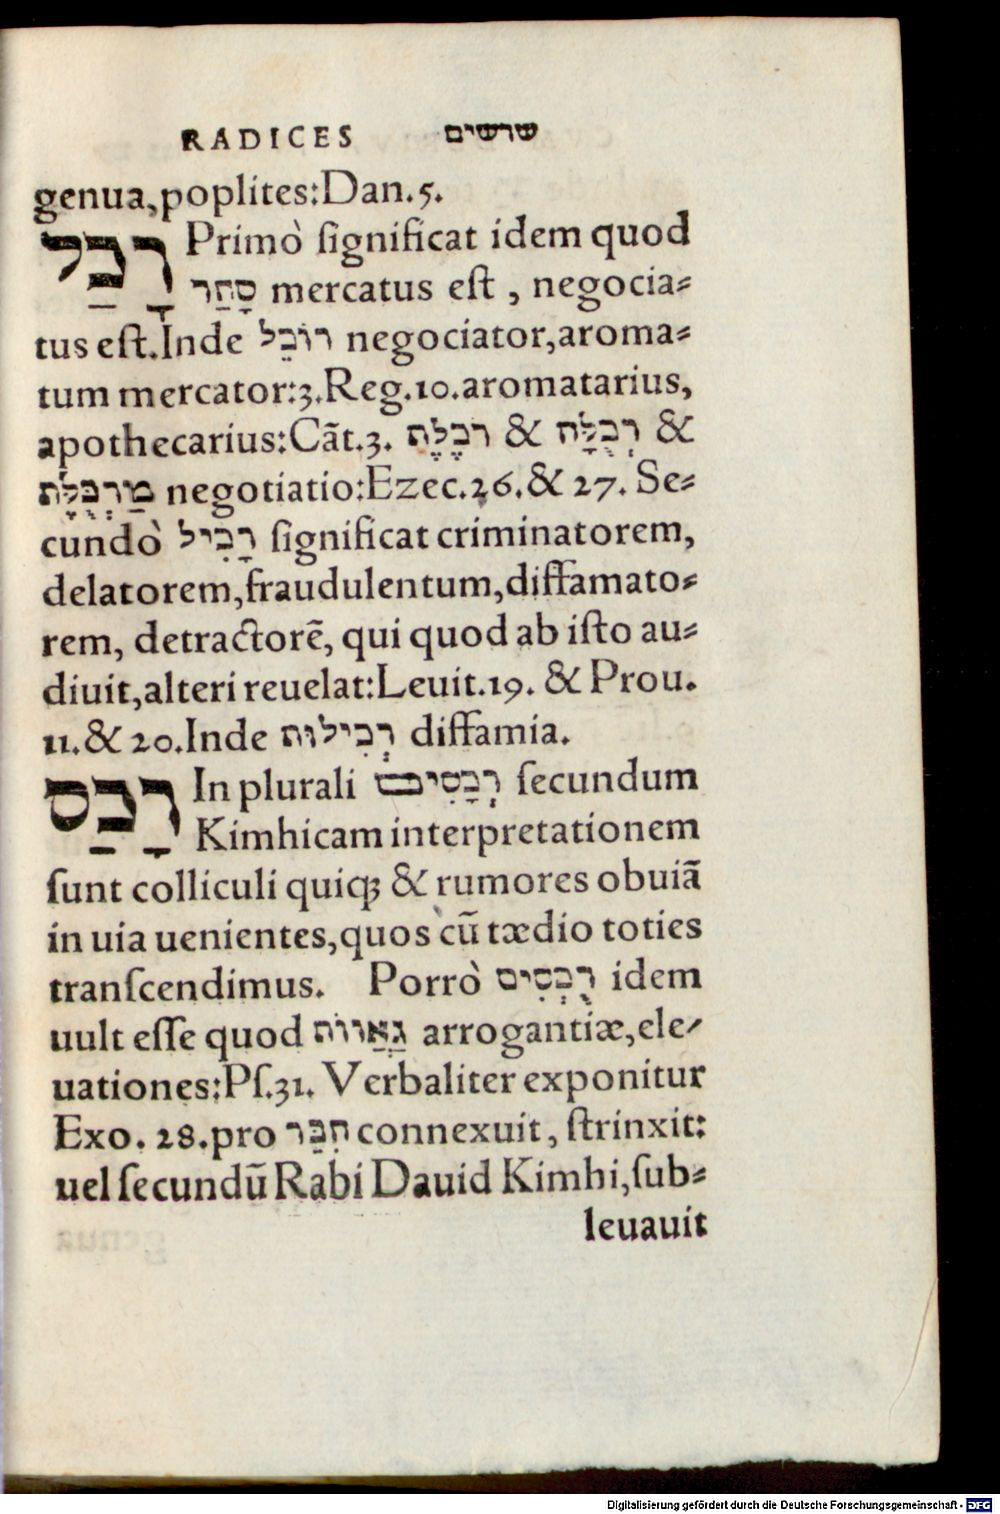 RADICES שרשים
genua, poplites: Dan. 5.
רָכַל Primò ſignificat idem quod
סָחַר mercatus eſt, negocia⸗
tus eſt. Inde רוֹכֵל negociator, aroma⸗
tum mercator: 3. Reg. 10. aromatarius,
apothecarius: Cãt. 3. רכֶלֶת & רְכֻלָּה &
מַרְכֻלָּת negotiatio: Ezec. 26. & 27. Se⸗
cundò רָכִיל ſignificat criminatorem,
delatorem, fraudulentum, diffamato⸗
rem, detractorẽ, qui quod ab iſto au⸗
diuit, alteri reuelat: Leuit. 19. & Prou.
11. & 20. Inde רְכִילוּת diffamia.
רָכַס In plurali רְכָסִים ſecundum
Kimhicam interpretationem
ſunt colliculi quiqꝫ & rumores obuiã
in uia uenientes, quos cũ tædio toties
tranſcendimus. Porrò רֻכְסִים idem
uult eſſe quod גַּאֲווֹת arrogantiæ, ele⸗
uationes: Pſ. 31. Verbaliter exponitur
Exo. 28. pro חִבַּר connexuit, ſtrinxit:
uel ſecundũ Rabi Dauid Kimhi, ſub⸗
leuauit
Digitalisierung gefördert durch die Deutsche Forschungsgemeinschaft - DFG